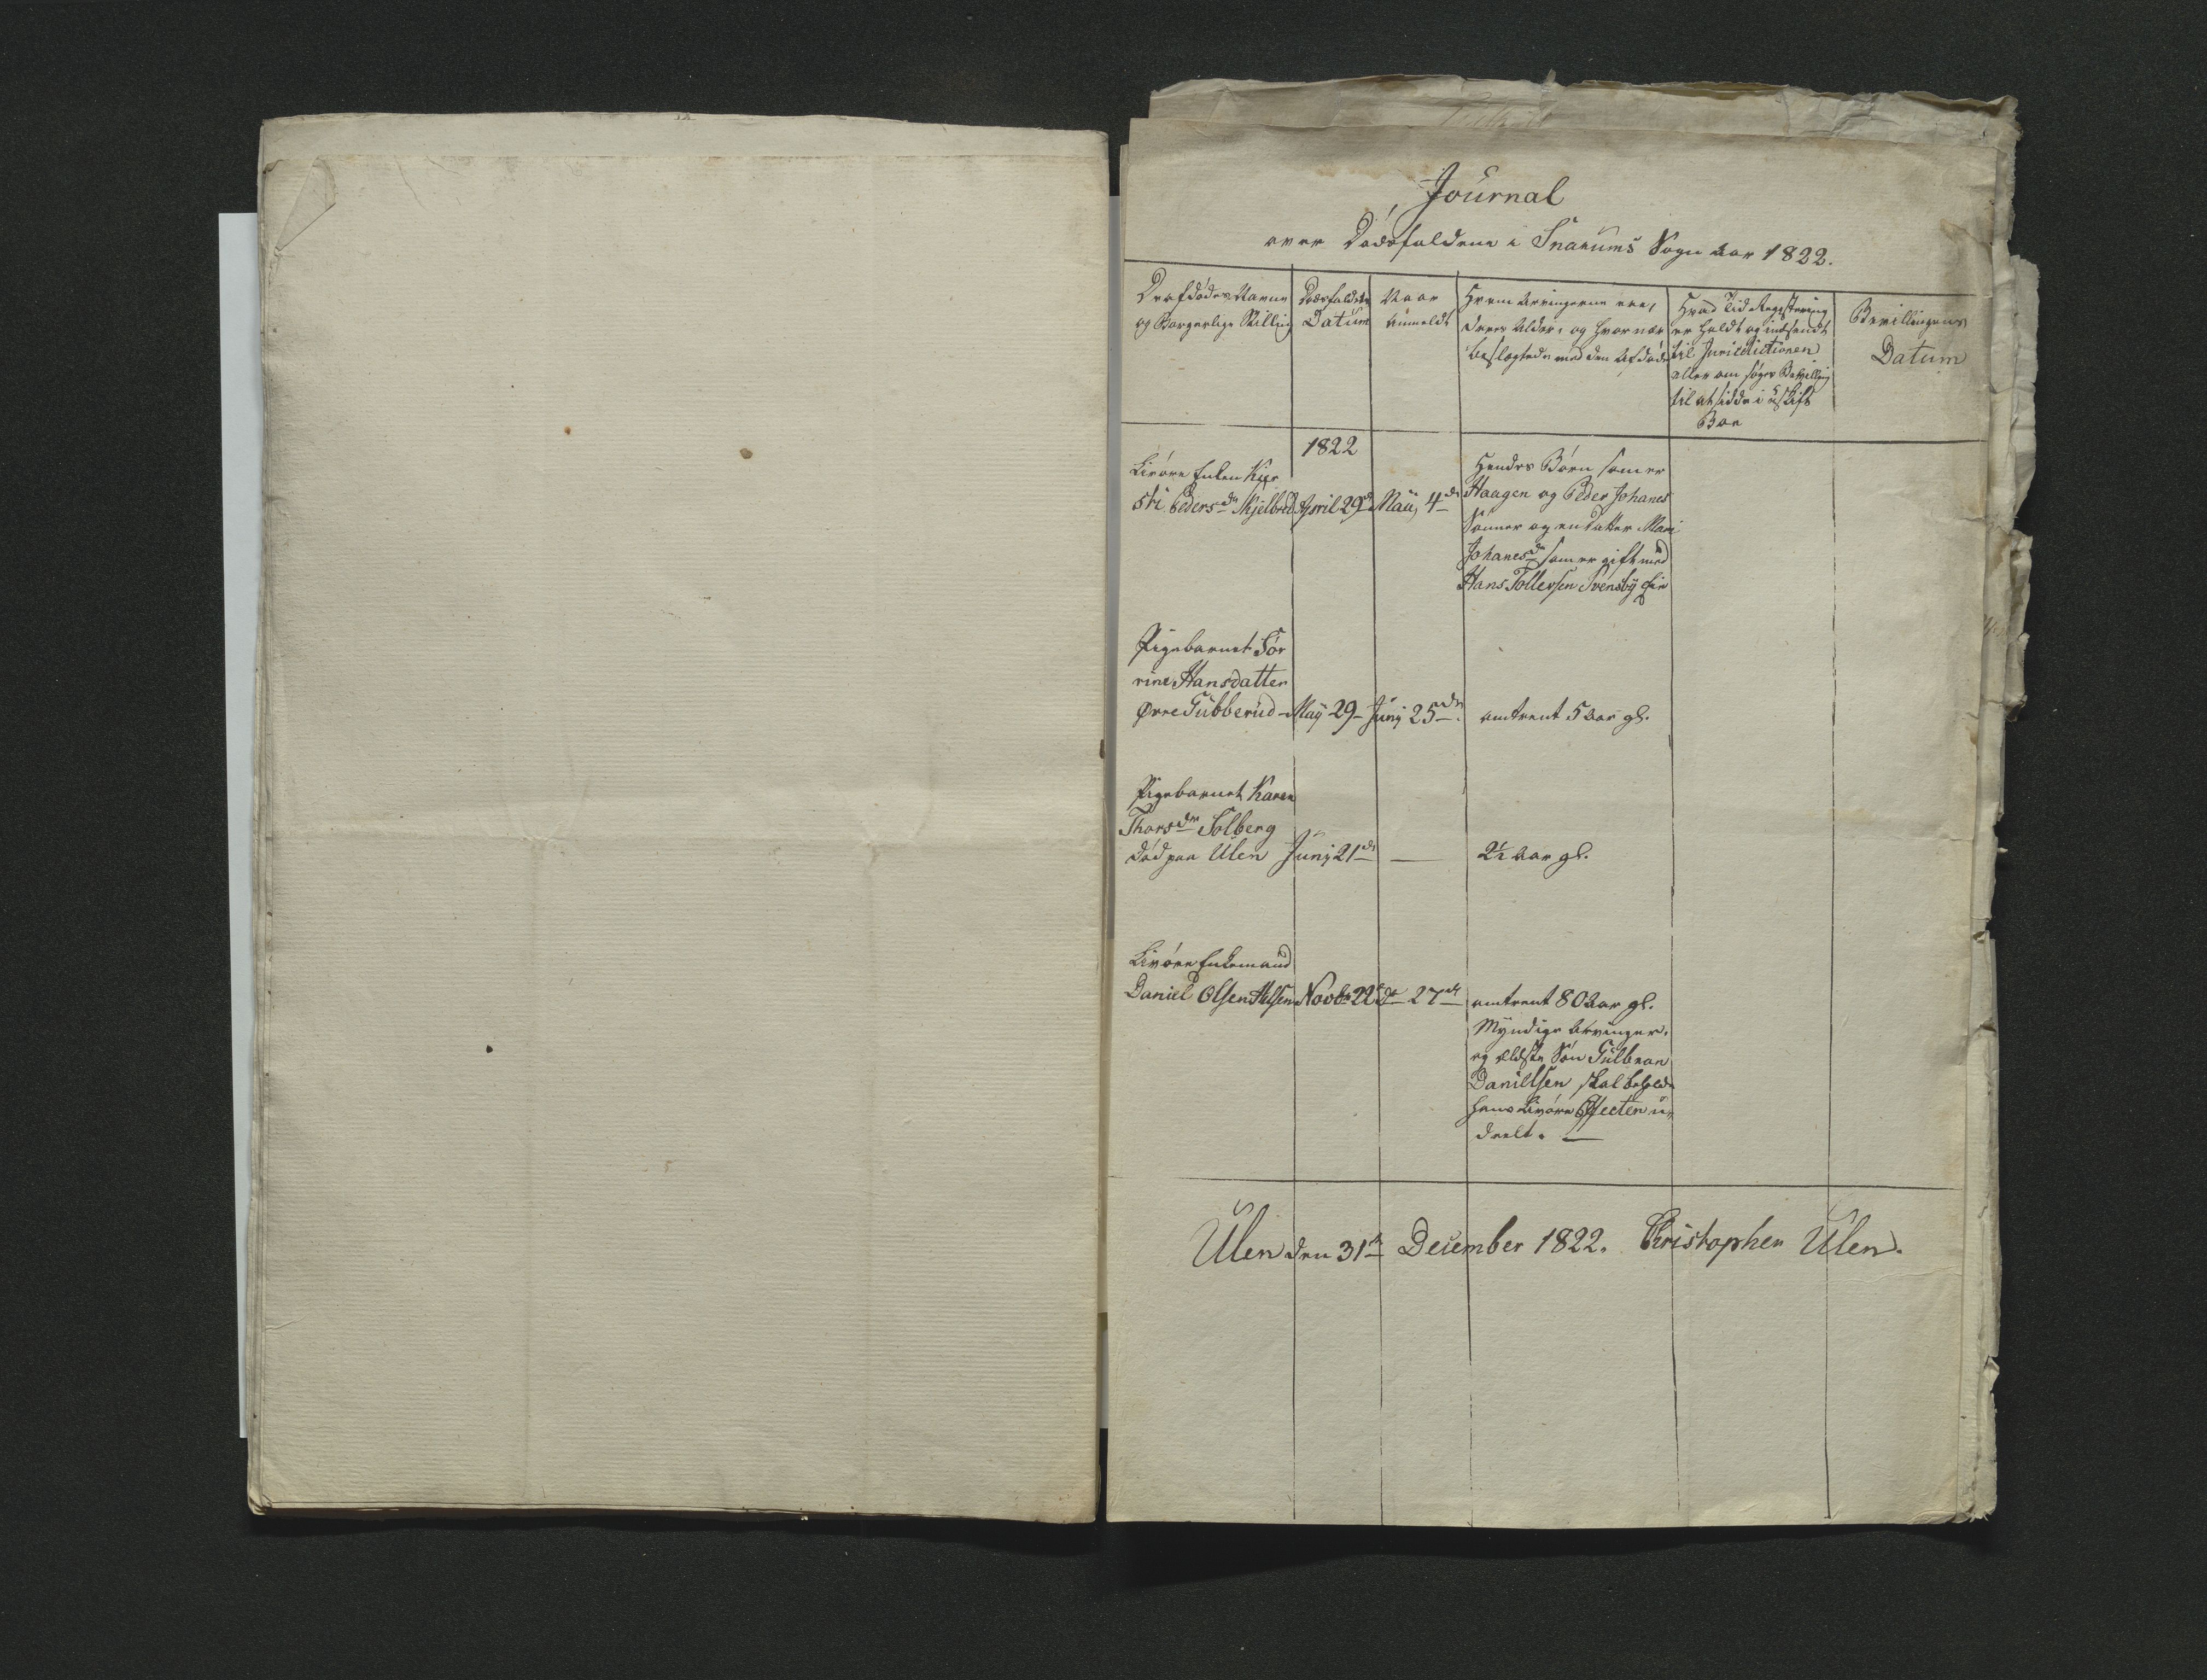 Journal
over Dødsfaldene i Snarums Sogn Aar 1822.
De afdødes Navne
og Borgerlige Stilling
Dødsfaldets
Datum
Naar
anmeldt
Hvem Arvingerne ere,
deres Alder, og hvor nær
beslægtede med den Afdøde
Hvad Tid Registrering
er holdt og indsendt
til Jurisdictionen
eller om søges Bevilling
til at sidde i uskift
Boe
Bevillingens
Datum
1822
Livøre Enken Kier
sti Peders dr Skjelbred April 29 d Maij 4 de
Hendes Børn som er
Haagen og Peder Johanes
Sønner og en Datter Mari
Johanes dr som er gift med
Hans Tollefsen Svensby
Pigebarnet Sør
rine Hansdatter
Øvre Gubberud - Maij 29 - Junij 25 de omtrent 5 Aar gl.
Pigebarnet Karen
Thors dr Solberg
død paa Ulen Junij 21 d — 2½ Aar gl.
Livøre Enkemand
Daniel Olsen Novb 22 d d 27 d omtrent 80 Aar gl.
Myndige Arvinger,
og ældste Søn Gulbran
Danillsen skal beholde
hans Livøre Effecter u,
deelt. —
Ulen den 31 te December 1822. Christopher Ulen.